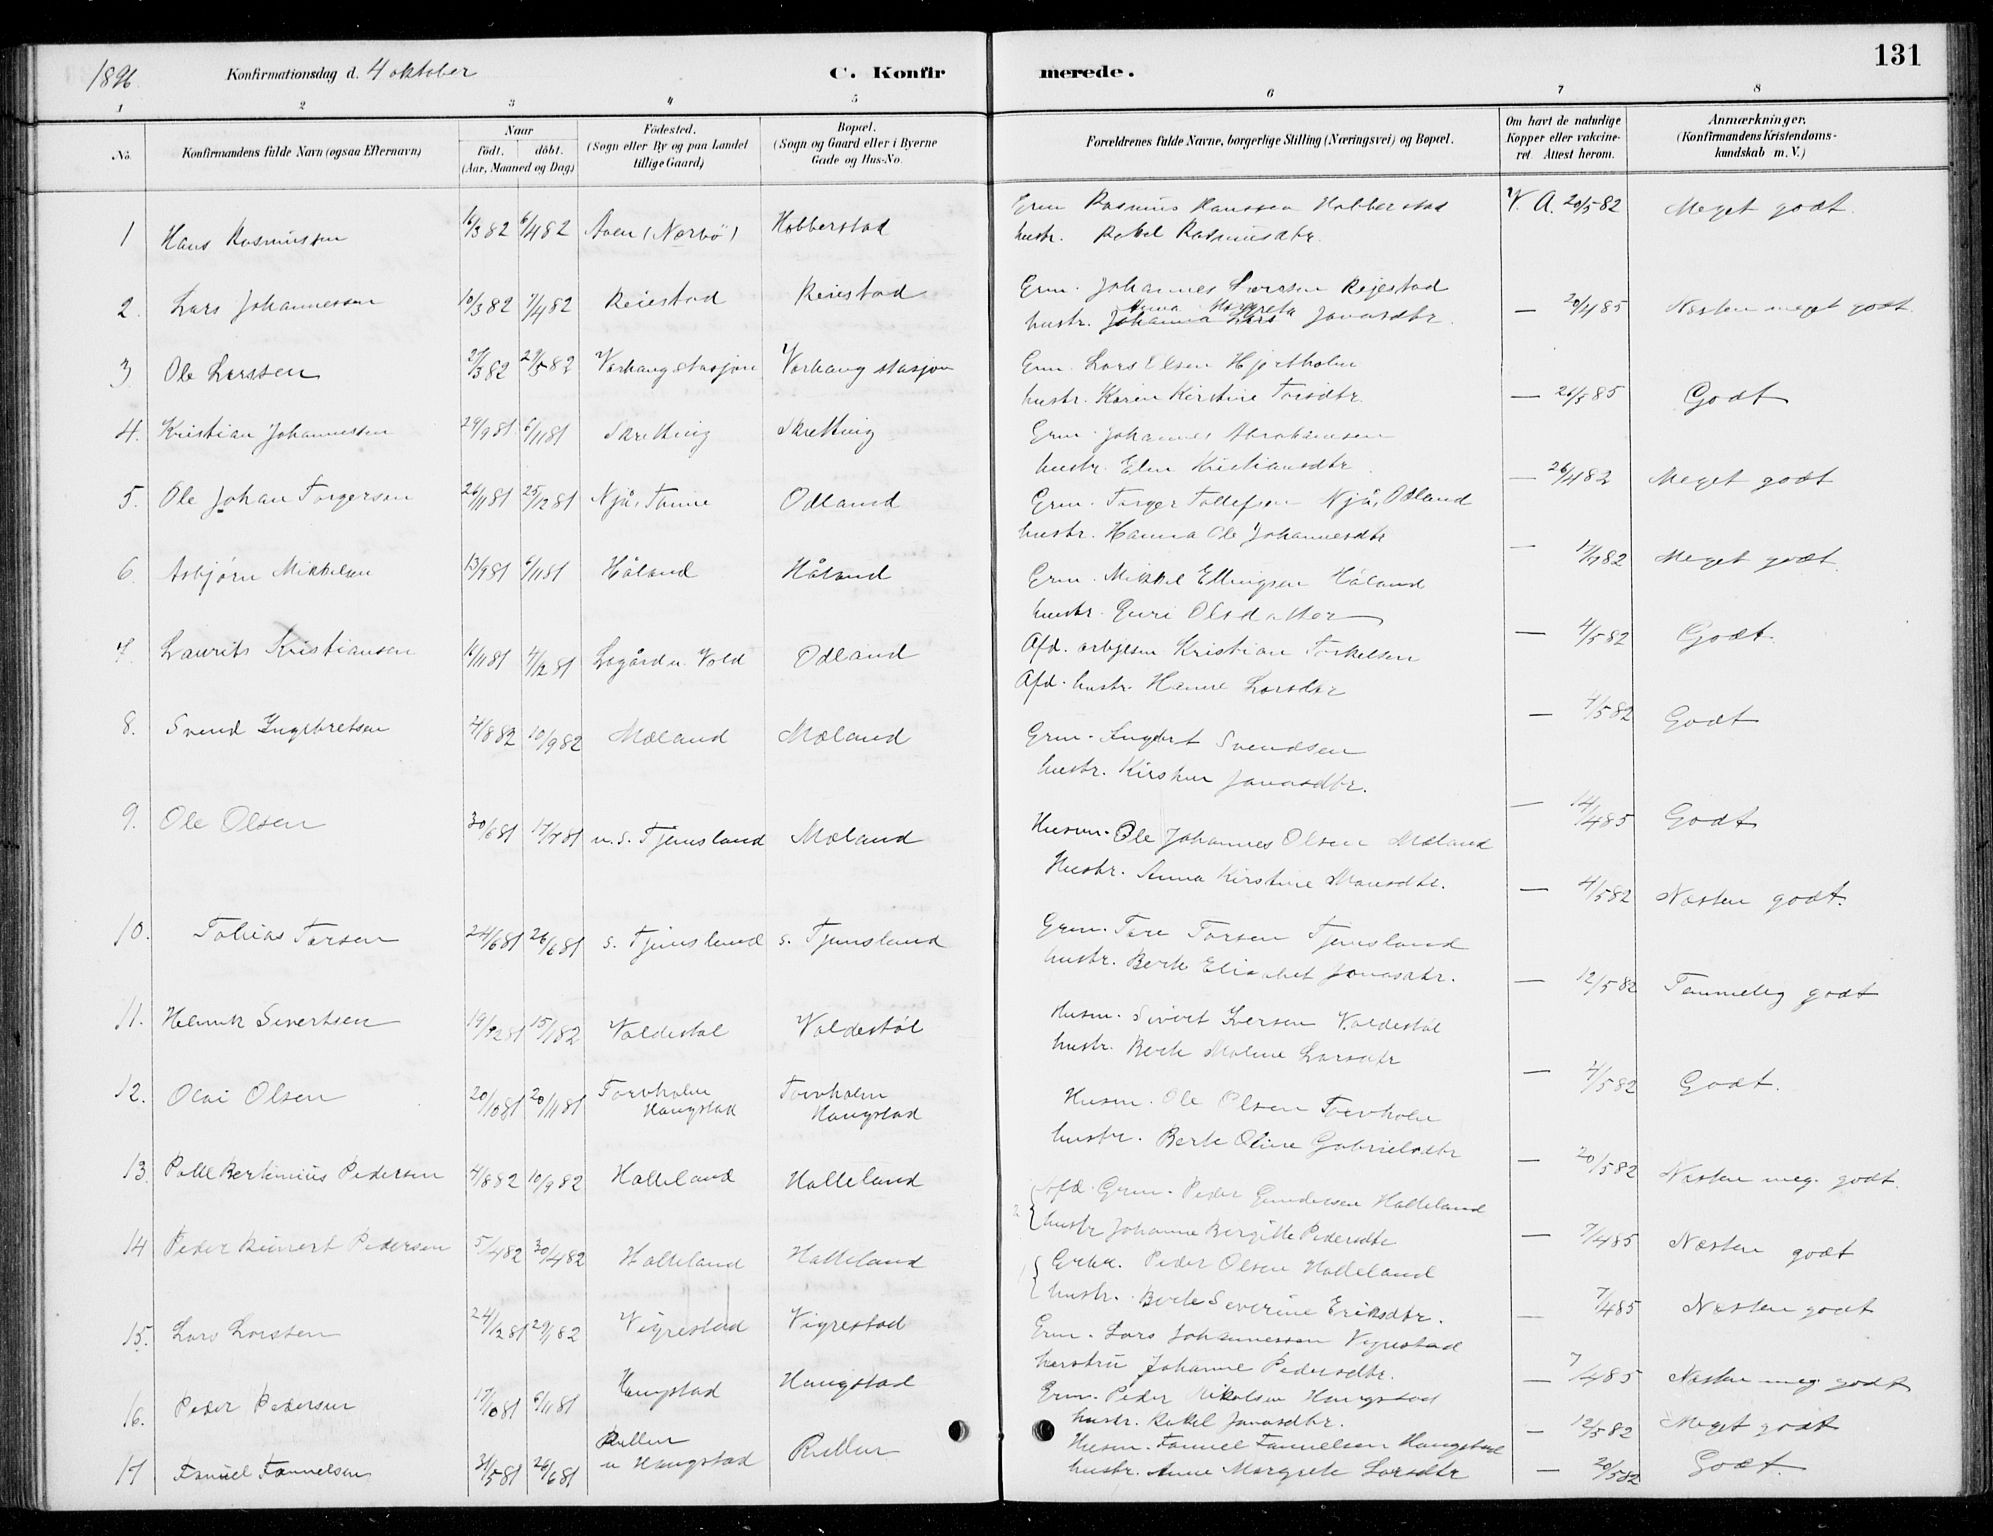 131
1896. Konfirmationsdag d. 4 oktober C. Konfir merede.
1 2 3 4 5 6 7 8
No. Konfirmandens fulde Navn (ogsaa Efternavn) Naar født. døbt. (Aar, Maaned og Dag) Fødested. (Sogn eller By og paa Landet tillige Gaard) Bopæl. (Sogn og Gaard eller i Byerne Gade og Hus-No. Forældrenes fulde Navne, borgerlige Stilling (Næringsvei) og Bopæl. Om havt de naturlige Kopper eller vakcineret Attest herom. Anmærkninger. (Konfirmandens Kristendomskundskab m. V.)
1 Hans Rasmussen 16/3 82 6/4 82 Aaen (Nærbø) Hobberstad Grm Rasmus Hanssen Hobberstad V. A. 20/5 82 Meget godt.
hustr. Rakel Rasmusdtr.
2. Lars Johannessen 10/3 82 7/4 82 Reiestad Reiestad Grm. Johannes Larssen Rejestad
Anna Margreta
hustr. Johanna Lars Jonasdtr. — 20/4 85 Næsten meget godt.
3 Ole Larssen 29/5 82 Varhaug stasjon Varhaug stasjon Grm. Lars Olsen Hjortholm
hustr. Karen Kirstine Torsdtr. — 26/5 85 Godt
4. Kristian Johannessen 29/9 81 6/11 81 Skretting Skretting Grm. Johannes Abrahamsen
hustr. Elen Kristiansdtr. — 26/4 82 Meget godt
5. Ole Johan Torgersen 26/11 81 25/12 81 Njå, Time Odland Grm. Torger Tollefsen Njå, Odland
hustr. Hanna Ole Johannesdtr — 82 Meget godt.
6. Asbjørn Mikkelsen 13/9 81 6/11 81 Håland Håland Grm. Mikkel Ellingsen Håland
hustr. Guri Olsdatter — 4/5 82 Godt.
7. Laurits Kristiansen 16/11 81 4/12 81 Legård u. Vold Odland Afd. arbjdsm Kristian Torkelsen
Afd. hustr. Hanne Larsdtr — 4/5 82 Godt
8. Svend Ingebretsen 4/8 82 10/9 82 Mæland Mæland Grm. Ingbert Svendsen
hustr. Kirsten Jonasdtr. — 14/4 85 Godt
9. Ole Olsen 30/6 81 17/7 81 n. s. Tjemsland Mæland Husm. Ole Johannes Olsen Mæland
Hustr. Anna Kirstine Monsdtr. — 4/5 82 Næsten godt.
10. Tobias Torsen 24/6 81 26/6 81 s. Tjemsland s. Tjemsland Grm. Tore Torsen Tjemsland
hustr. Berte Elisabet Jonasdtr. — 12/5 82 Temmelig godt
11. Henrik Sivertsen 15/1 82 Valdestøl Valdestøl Husm. Sivert Larsen Valdestøl
hustr. Berte Maline Larsdtr — 4/5 82 Godt.
12. Olai Olsen 20/10 81 20/11 81 Torvholm Haugstad Torvholm Haugstad Husm. Ole Olsen Torvholm
hustr. Berte Oline Gabrielsdtr — 20/5 82 Næsten meg. godt.
13. Palle Bertinius Pedersen 4/8 82 10/9 82 Halleland Halleland 2 { Afd. Grm. Peder Gundersen Halleland
hustr Johanne Bergitte Pedersdtr — 7/4 85 Næsten godt
14 Peder Reinert Pedersen 5/4 82 30/4 82 Halleland Halleland 1 { Grbr. Peder Olsen Halleland
hustr. Berte Severine Eriksdtr. — 7/4 85 Næsten godt
15. Lars Larssen 24/12 81 29/1 82 Vigrestad Vigrestad Grm. Lars Johannessen Vigrestad
hustru Johanne Pedersdtr. — 7/4 85 Næsten meg godt
16. Peder Pedersen 17/10 81 6/11 81 Haugstad Haugstad Grm. Peder Nikolsen Haugstad
hustr. Rakel Jonasdtr. — 12/5 82 Meget godt
17 Fanuel Fanuelsen 31/5 81 26/6 81 Rullen u Haugstad Rullen Husm. Fanuel Fanuelsen Haugstad
hustr. Anne Margrete Larsdtr — 20/5 82 Godt.